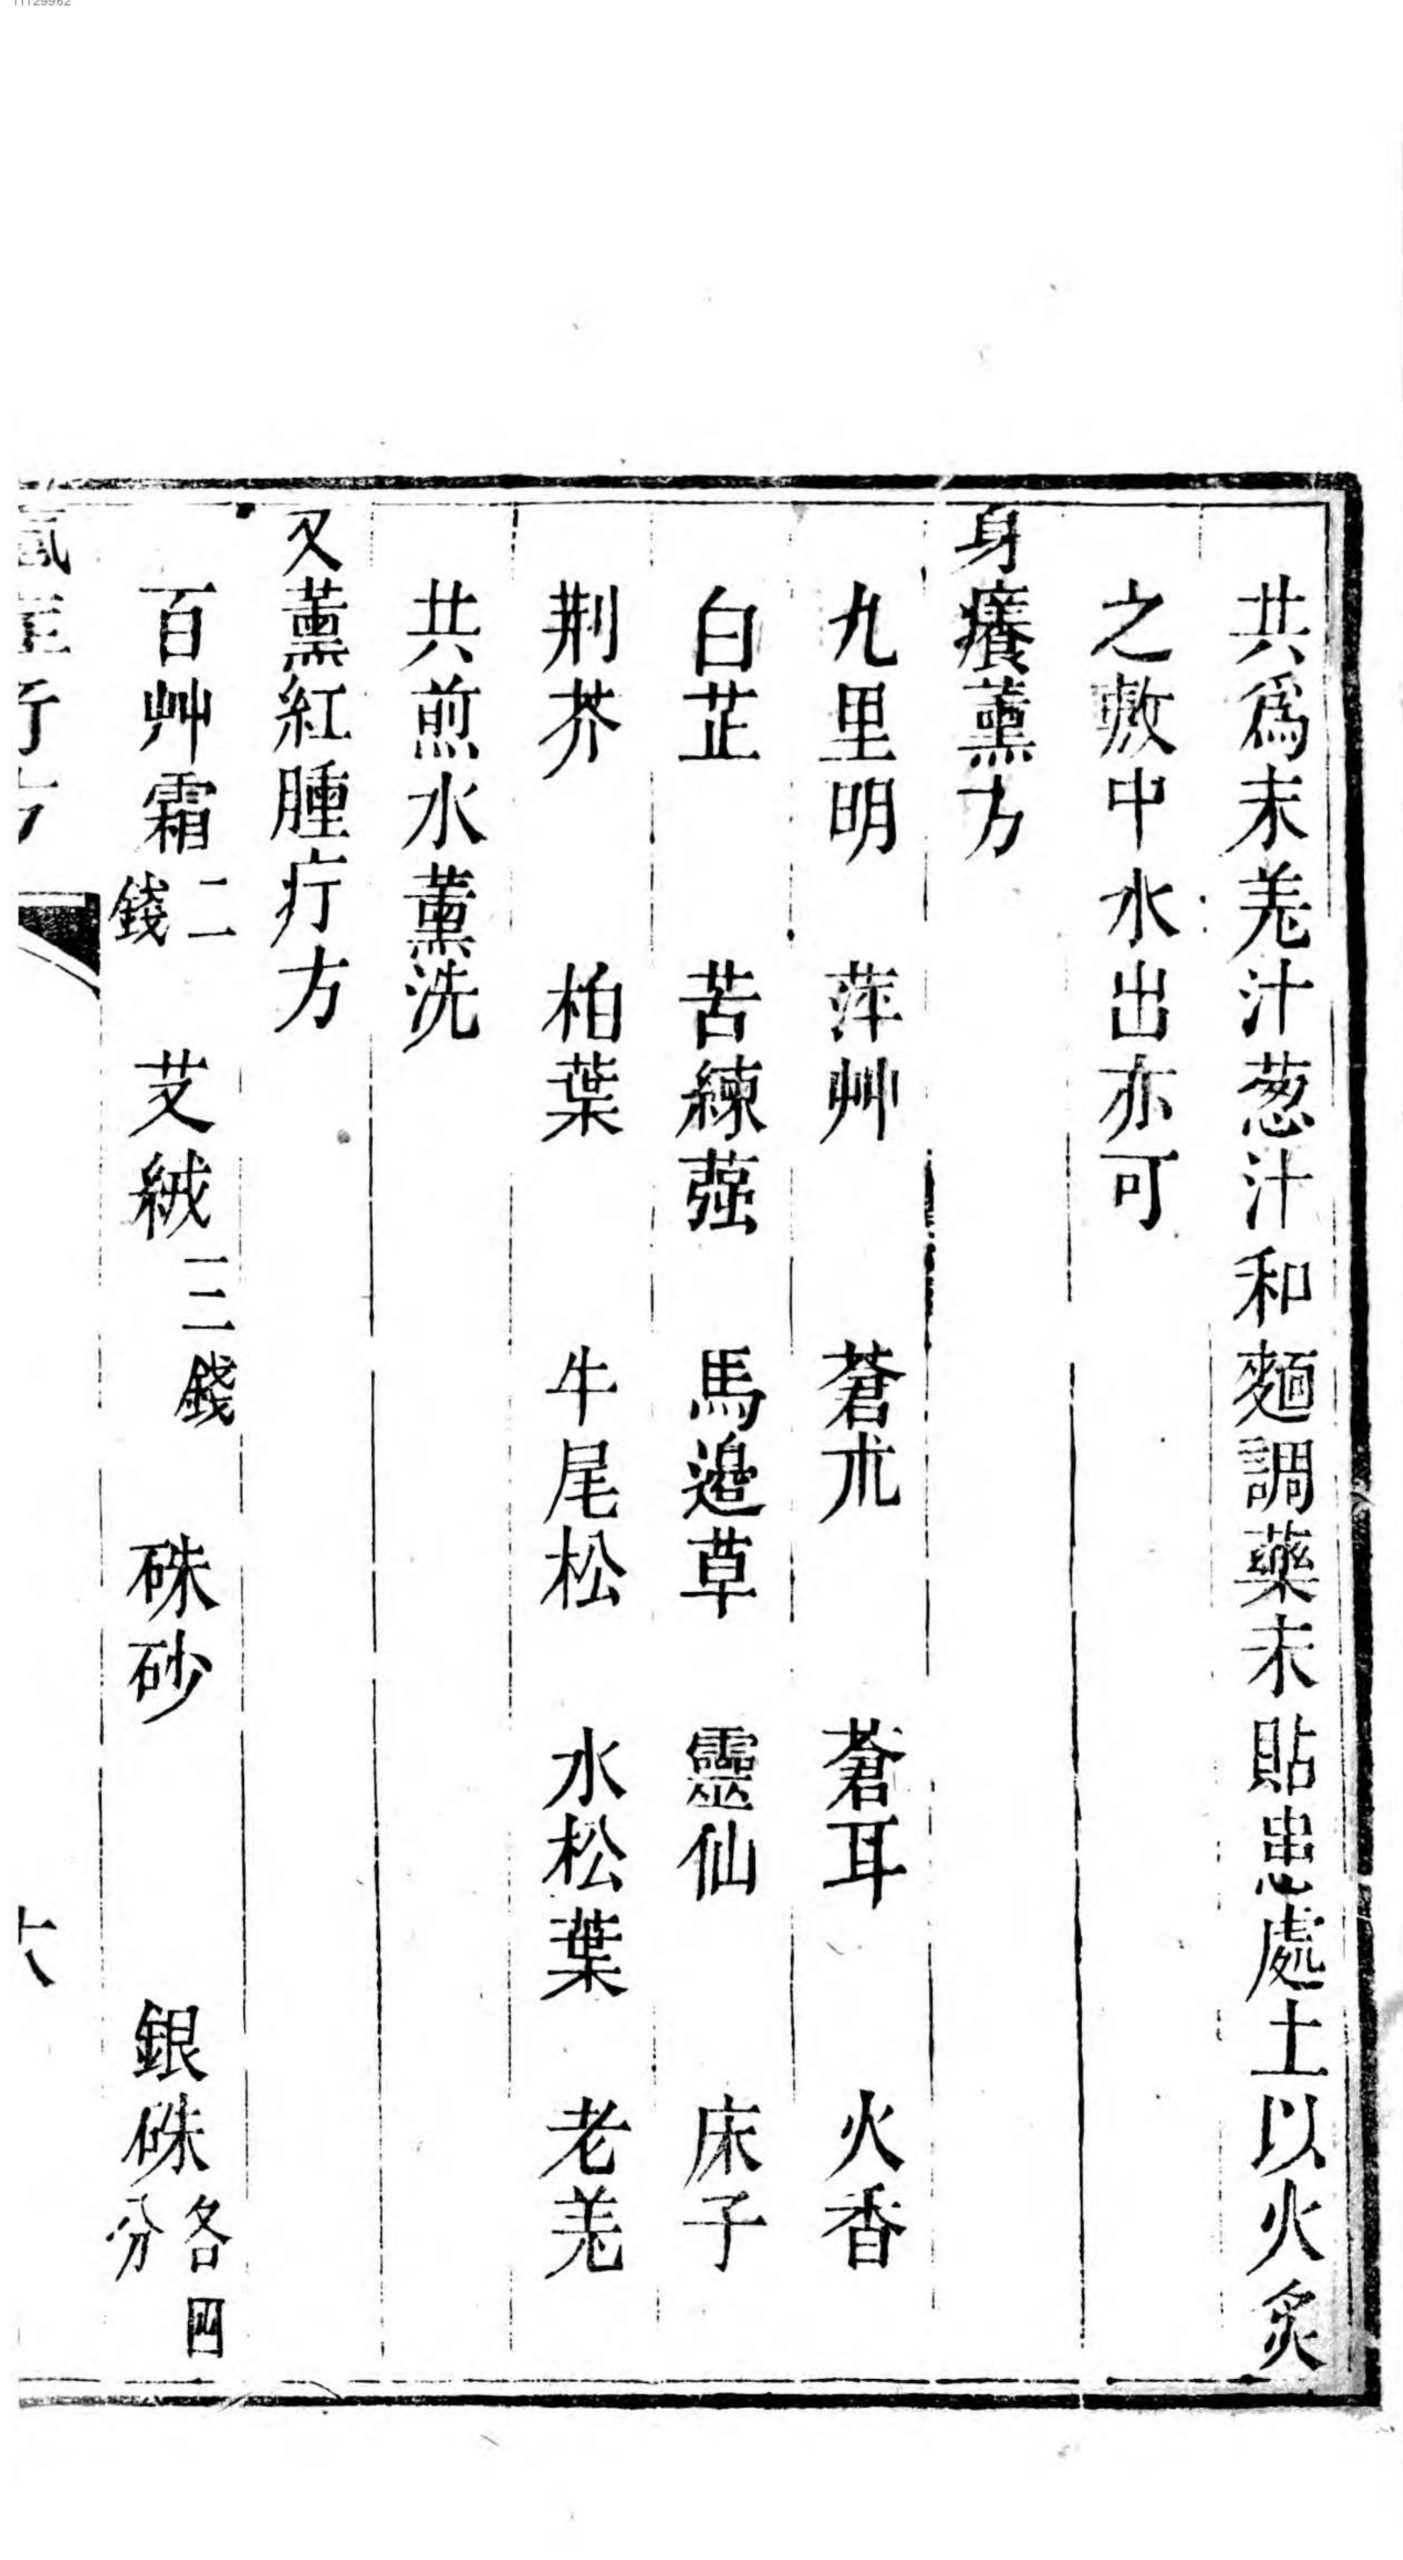 共爲末羗汁葱汁和麵調藥末貼患處土以火炙
之敷中水出亦可
身癢薰方
九里明 萍艸 蒼朮 蒼耳 火香
白芷 苦練蔃 馬邉草 靈仙 床子
荆芥 柏葉 牛尾松 水松葉 老羗
共煎水薰洗
又薰紅腫疔方
百艸霜二錢 艾絨三錢 硃砂 銀硃各四分
六
11129962